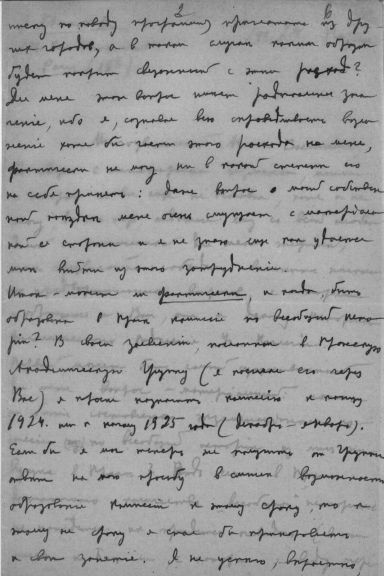 2
нием по поводу программы приглашать из дру-
гих городов, а в таком случае каким образом
будет покрыт связанный с этим расход?
Для меня этот вопрос имеет радикальное зна-
чение, ибо я, сознавая всю справедливость возло-
жения хотя бы части этого расхода на меня,
фактически не могу ни в какой степени его
на себя принять: даже вопрос о моей собствен-
ной поездке меня очень смущает с материаль-
ной её стороны и я не знаю еще как удастся
мне выйти из этого затруднения.
Итак - может ли фактически, и когда, быть
образована в Праге комиссия по всеобщей исто-
рии? В своем заявлении, посланном в Пражскую
Академическую Группу (я послал его через
Вас) я просил назначить комиссию к концу
1924. или к началу 1925 года (декабрь - январь).
Если бы я мог теперь же получить от Группы
ответ на мою просьбу в смысле возможности
образования комиссии к этому сроку, то к
этому же сроку я стал бы приноровлять
и свои занятия. Я не успею, вероятно,